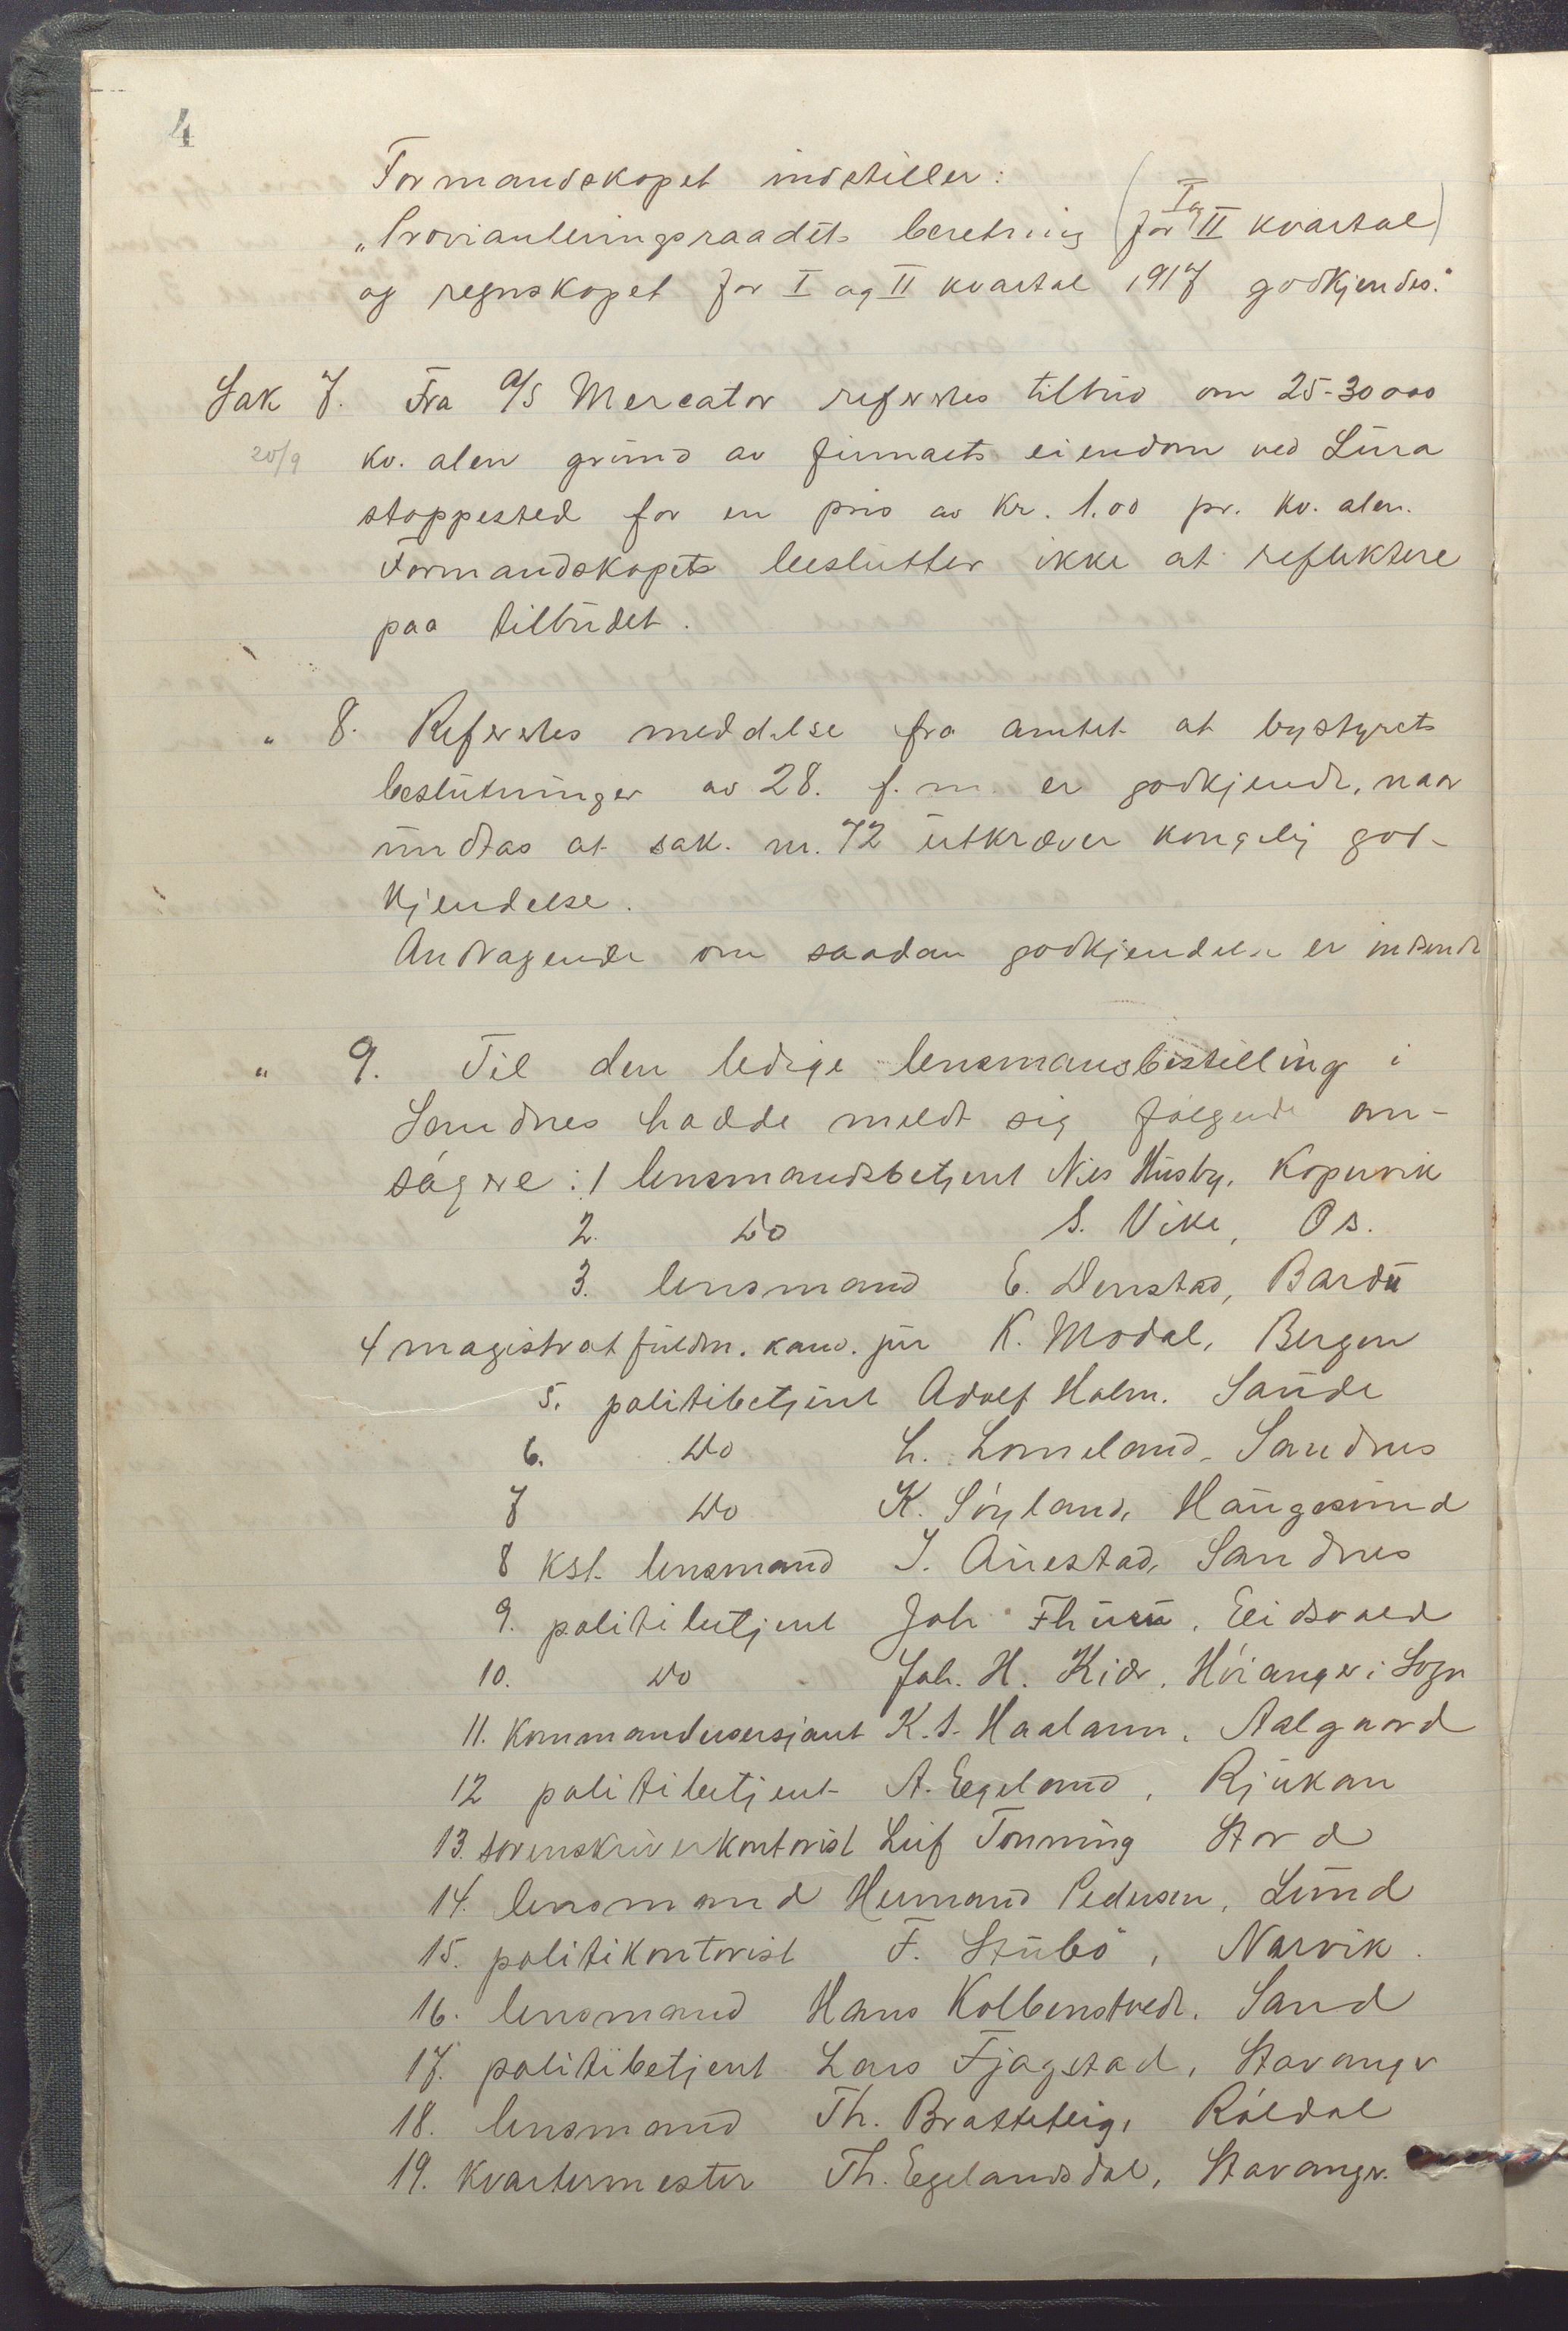 4
Formandskapet indstiller:
"Provianteringsraadets beretning (for I og II kvartal)
og regnskapet for I og II kvartal 1917 godkjendes."
Sak 7. Fra A/S Mercator refertes tilbud om 25-30000
20/9 kv. alen grund av firmaets eiendom ved Lura
stoppested for en pris av kr. 1.00 pr. kv. alen.
Formandskapets beslutter ikke at reflektere
paa tilbudet.
" 8. Refertes meddelse fra amtet at bystyrets
beslutninger av 28. f.m. er godkjendt, naar
undtas at sak. nr. 72 utkræver kongelig god-
kjendelse.
Andragende om saadan godkjendelse er indsendt
" 9. Til den ledige lensmansbestilling i
Sandnes hadde meldt sig følgende an-
søgere: 1 lensmandsbetjent Nils Husby, Kopervik
2. do S. Vike, Os.
3. lensmand E. Denstad, Bardu
4 magistratfuldm. kand. jur K. Modal, Bergen
5. politibetjent Adolf Holm. Saude
6. do L. Lomeland, Sandnes
7 do K. Søyland, Haugesund
8 kst. lensmand J. Auestad, Sandnes
9. politibetjent Joh Thuru, Eidsvold
10. do Joh. H. Kidr, Høianger i Sogn
11. Kommandersersjant K. S. Haaland, Aalgaard
12 politibetjent A. Egeland, Rjukan
13. sorenskriverkontorist Leif Tonning Stord
14. lensmand Hermand Pedersen, Lund
15. politikontorist F. Stubø, Narvik.
16. lensmand Hans Kolbenstvedt, Sand
17. politibetjent Lars Fjagstad, Stavanger
18. lensmand Th. Bratteteig, Røldal
19. Kvartermester Th. Egelandsdal, Stavanger.